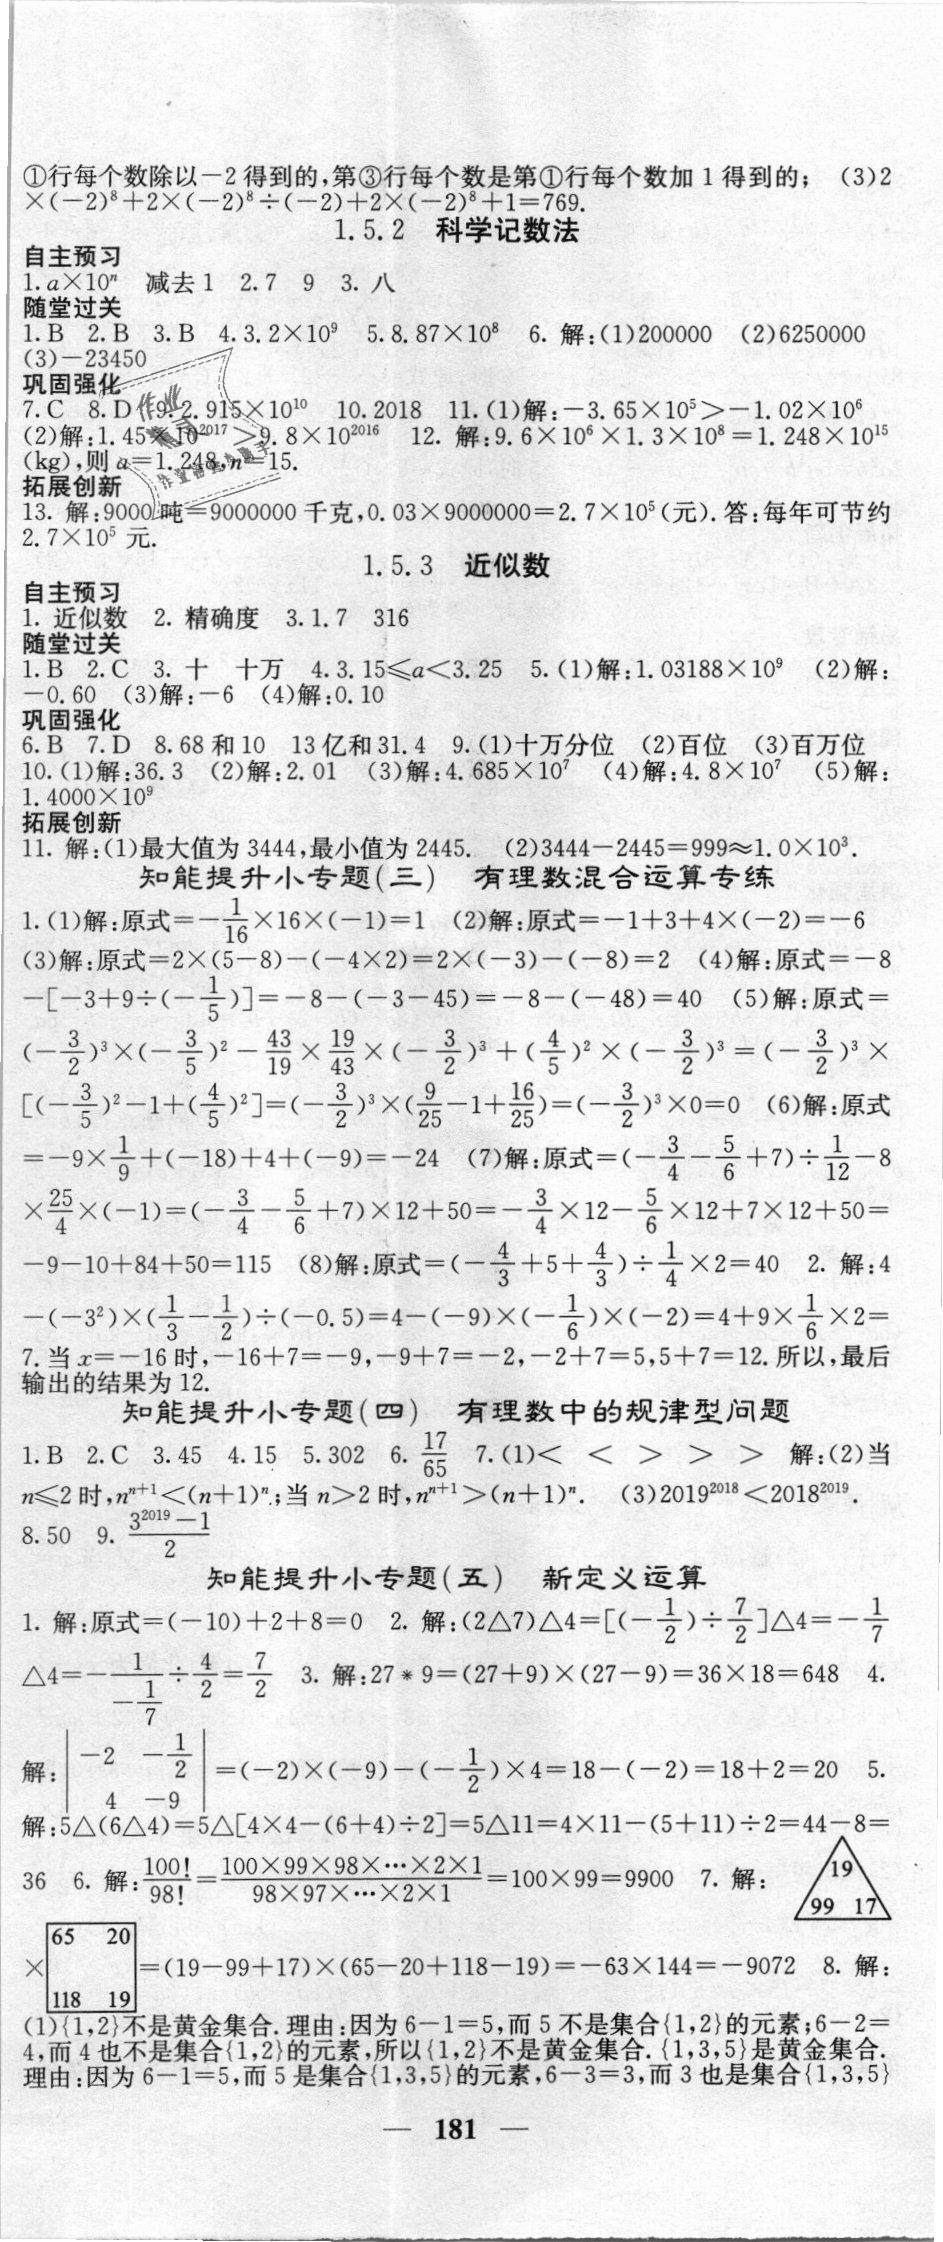 ①行每个数除以-2得到的,第③行每个数是第①行每个数加1得到的; (3)2
×(-2)⁸+2×(-2)⁸÷(-2)+2×(-2)⁸+1=769.
1.5.2 科学记数法
自主预习
1.a×10ⁿ 减去1 2.7 9 3.八
随堂过关
1.B 2.B 3.B 4.3.2×10⁹ 5.8.87×10⁸ 6.解:(1)200000 (2)6250000
(3)-23450
巩固强化
7.C 8.D 9.2.915×10¹⁰ 10.2018 11.(1)解:-3.65×10⁵>-1.02×10⁶
(2)解:1.45×10²⁰¹⁷>9.8×10²⁰¹⁶ 12.解:9.6×10⁶×1.3×10⁸=1.248×10¹⁵
(kg),则a=1.248,n=15.
拓展创新
13.解:9000吨=9000000千克,0.03×9000000=2.7×10⁵(元).答:每年可节约
2.7×10⁵元.
1.5.3 近似数
自主预习
1.近似数 2.精确度 3.1.7 316
随堂过关
1.B 2.C 3.十 十万 4.3.15≤a<3.25 5.(1)解:1.03188×10⁹ (2)解:
-0.60 (3)解:-6 (4)解:0.10
巩固强化
6.B 7.D 8.68和10 13亿和31.4 9.(1)十万分位 (2)百位 (3)百万位
10.(1)解:36.3 (2)解:2.01 (3)解:4.685×10⁷ (4)解:4.8×10⁷ (5)解:
1.4000×10⁹
拓展创新
11.解:(1)最大值为3444,最小值为2445. (2)3444-2445=999≈1.0×10³.
知能提升小专题(三) 有理数混合运算专练
1.(1)解:原式=-1/16×16×(-1)=1 (2)解:原式=-1+3+4×(-2)=-6
(3)解:原式=2×(5-8)-(-4×2)=2×(-3)-(-8)=2 (4)解:原式=-8
-[-3+9÷(-1/5)]=-8-(-3-45)=-8-(-48)=40 (5)解:原式=
(-3/2)³×(-3/5)²-43/19×19/43×(-3/2)³+(4/5)²×(-3/2)³=(-3/2)³×
[(-3/5)²-1+(4/5)²]=(-3/2)³×(9/25-1+16/25)=(-3/2)³×0=0 (6)解:原式
=-9×1/9+(-18)+4+(-9)=-24 (7)解:原式=(-3/4-5/6+7)÷1/12-8
×25/4×(-1)=(-3/4-5/6+7)×12+50=-3/4×12-5/6×12+7×12+50=
-9-10+84+50=115 (8)解:原式=(-4/3+5+4/3)÷1/4×2=40 2.解:4
-(-3²)×(1/3-1/2)÷(-0.5)=4-(-9)×(-1/6)×(-2)=4+9×1/6×2=
7.当x=-16时,-16+7=-9,-9+7=-2,-2+7=5,5+7=12.所以,最后
输出的结果为12.
知能提升小专题(四) 有理数中的规律型问题
1.B 2.C 3.45 4.15 5.302 6.17/65 7.(1)< < > > > 解:(2)当
n≤2时,nⁿ⁺¹<(n+1)ⁿ;当n>2时,nⁿ⁺¹>(n+1)ⁿ. (3)2019²⁰¹⁸<2018²⁰¹⁹.
8.50 9.(3²⁰¹⁹-1)/2
知能提升小专题(五) 新定义运算
1.解:原式=(-10)+2+8=0 2.解:(2△7)△4=[(-1/2)÷7/2]△4=-1/7
△4=-1/(-1/7)÷4/2=7/2 3.解:27*9=(27+9)×(27-9)=36×18=648 4.
解:|-2 -1/2
4 -9|=(-2)×(-9)-(-1/2)×4=18-(-2)=18+2=20 5.
解:5△(6△4)=5△[4×4-(6+4)÷2]=5△11=4×11-(5+11)÷2=44-8=
36 6.解:100!/98!=(100×99×98×⋯×2×1)/(98×97×⋯×2×1)=100×99=9900 7.解:
19
99 17
65 20
×=(19-99+17)×(65-20+118-19)=-63×144=-9072 8.解:
118 19
(1){1,2}不是黄金集合.理由:因为6-1=5,而5不是集合{1,2}的元素;6-2=
4,而4也不是集合{1,2}的元素,所以{1,2}不是黄金集合.{1,3,5}是黄金集合.
理由:因为6-1=5,而5是集合{1,3,5}的元素,6-3=3,而3也是集合{1,3,5}
— 181 —